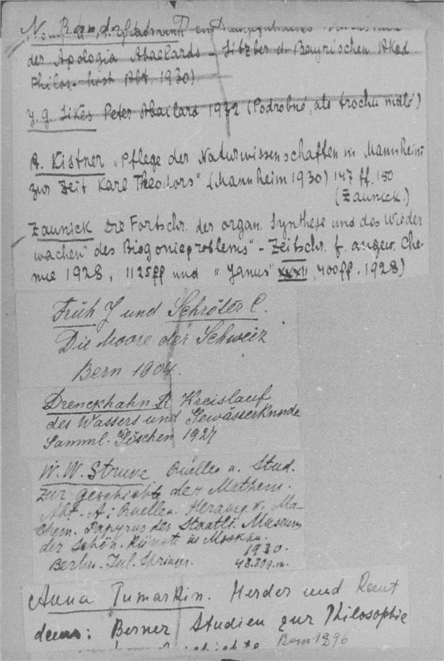 der Apologia Abaelards - Sitzber. d. Bayrischen Akad
Philos.-hist Abt. 1930)
J. G. Sikes Peter Abailard 1932 (Podrobné, ale trochu málo)
A. Kistner "Pflege der Naturwissenschaften in Mannheim
zur Zeit Karl Theodors" (Mannheim 1930) 147 ff. 150
(Zaunick.)
Zaunick Die Fortschr. der organ. Synthese und des Wieder
wachen des Biogonieproblems" - Zeitschr. f. angew. Che-
mie 1928, 1125 ff und "Janus" XXXII, 400 ff. 1928)
Früh J und Schröter C.
Die Moore der Schweiz
Bern 1904.
Drenckhahn R Kreislauf
des Wassers und Gewässerkunde
Samml. Göschen 1927
W. W. Struve Quellen u. Stud.
zur Geschichte der Mathem.
Abt. A: Quellen. Herausg. v. Ma-
them. Papyrus des Staatl. Museum
der Schön. Künst. in Moskau.
1930.
Berlin. Jul. Spring. 48.80
Anna Tumarkin. Herder und Kant
Berner Studien zur Philosophie
Bern 1896